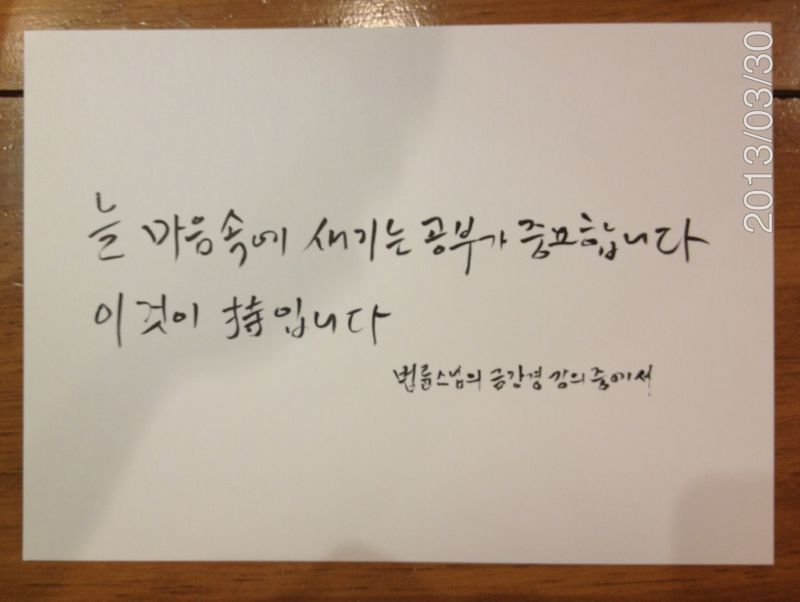 늘 마음속에 새기는 공부가 중요합니다
이것이 持입니다
법륜스님의 금강경 강의 중에서
2013/03/30